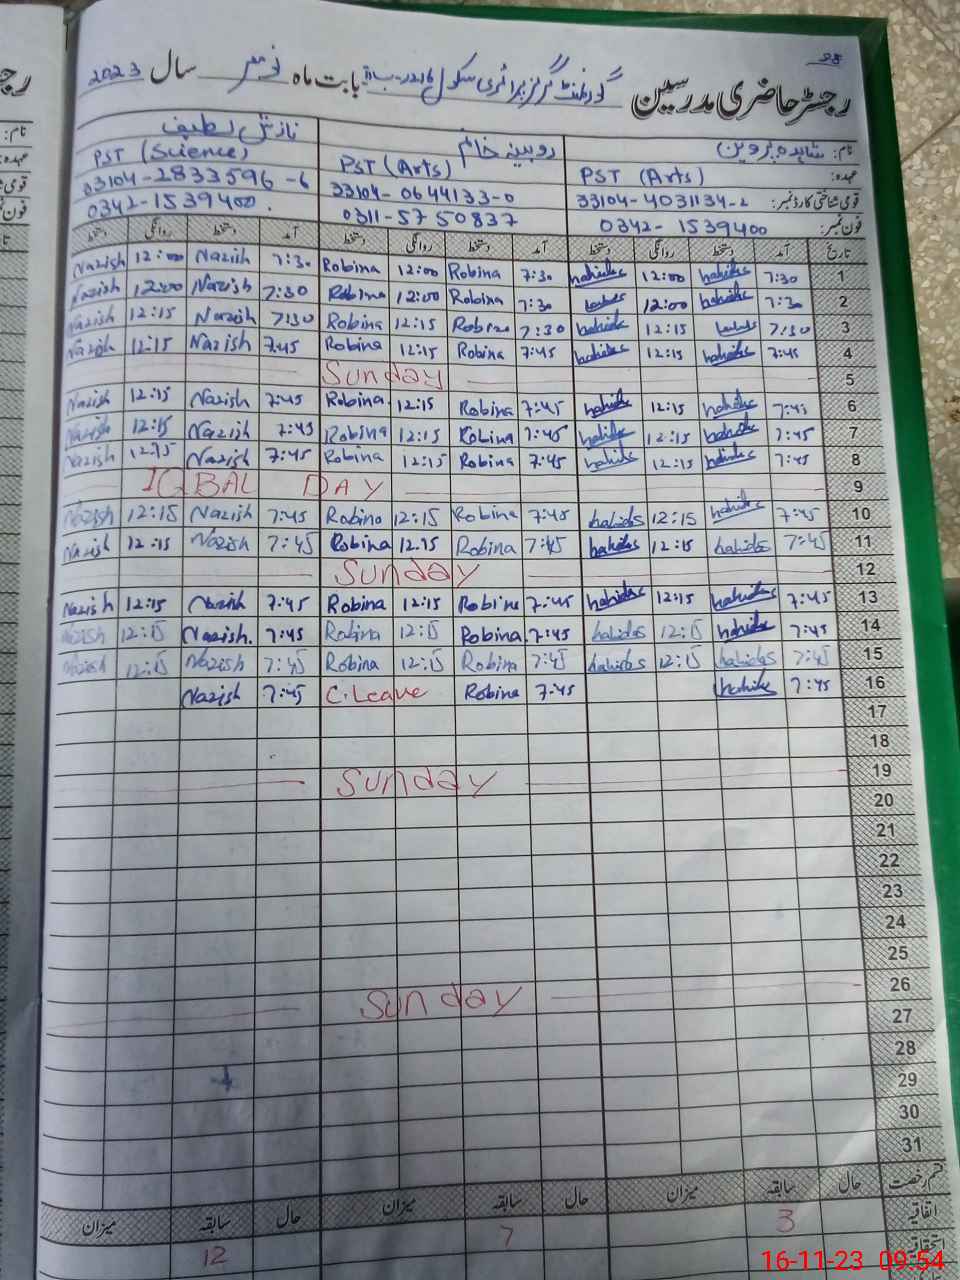 28
رجسٹر حاضری مدرسین گورنمنٹ گرلز پرائمری سکول بابت ماہ نومبر سال 2023
نام: شاہدہ پروین روبینہ خانم نازش لطیف
عہدہ: PST (Arts) PST (Arts) PST (Science)
قومی شناختی کارڈ نمبر: 33104-4031134-2 33104-0644133-0 33104-2833596-6
فون نمبر: 0342-1539400 0311-5750837 0342-1539400.
تاریخ آمد دستخط روانگی دستخط آمد دستخط روانگی دستخط آمد دستخط روانگی دستخط
Nazish 12:00 Nazish 7:30 Robina 12:00 Robina 7:30 12:00 7:30 1
Nazish 12:00 Nazish 7:30 Robina 12:00 Robina 7:30 12:00 7:30 2
Nazish 12:15 Nazish 7:30 Robina 12:15 Robina 7:30 12:15 7:30 3
Nazish 12:15 Nazish 7:45 Robina 12:15 Robina 7:45 12:15 7:45 4
Sunday 5
Nazish 12:15 Nazish 7:45 Robina 12:15 Robina 7:45 12:15 7:45 6
Nazish 12:15 Nazish 7:45 Robina 12:15 Robina 7:45 12:15 7:45 7
Nazish 12:15 Nazish 7:45 Robina 12:15 Robina 7:45 12:15 7:45 8
IQBAL DAY 9
Nazish 12:15 Nazish 7:45 Robina 12:15 Robina 7:45 12:15 7:45 10
Nazish 12:15 Nazish 7:45 Robina 12.15 Robina 7:45 12:15 7:45 11
Sunday 12
Nazish 12:15 Nazish 7:45 Robina 12:15 Robina 7:45 12:15 7:45 13
Nazish 12:15 Nazish. 7:45 Robina 12:15 Robina. 7:45 12:15 7:45 14
Nazish 12:15 Nazish 7:45 Robina 12:15 Robina 7:45 12:15 7:45 15
Nazish 7:45 C.Leave Robina 7:45 7:45 16
17
18
Sunday 19
20
21
22
23
24
25
Sunday 26
27
28
29
30
31
قسم رخصت حال سابقہ میزان حال سابقہ میزان حال سابقہ میزان
اتفاقیہ 3 7 12
استحقاقیہ
16-11-23 09:54